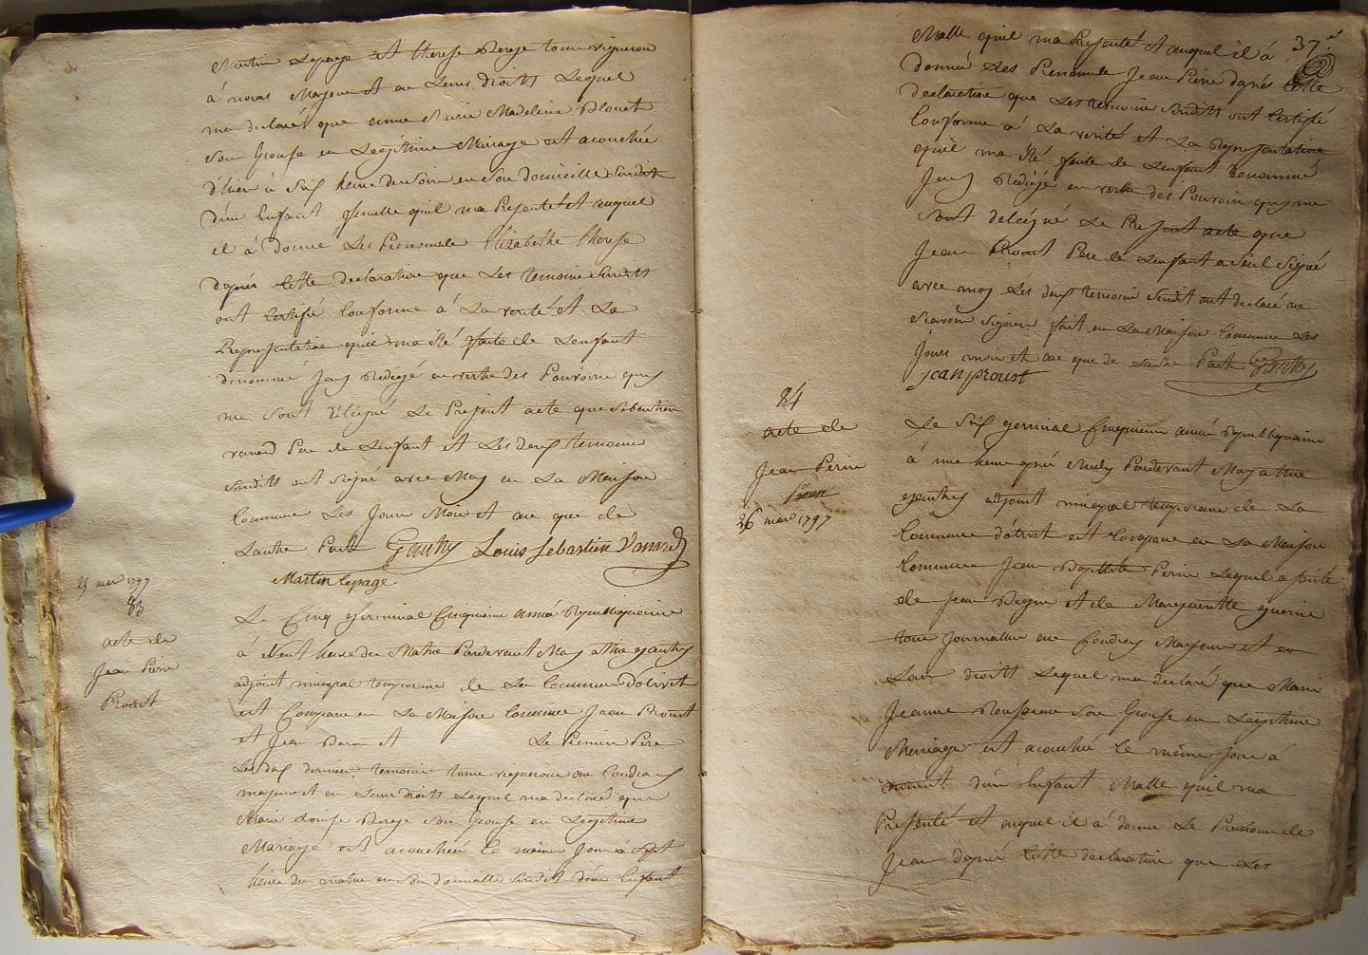 Martin Lepage et therese Berege tous vigneron
à noras Majeur et de Leurs droits Lequel
ma declaré que anne Marie Madeleine Blouet
Son Epouse en Legitime Mariage est acouchée
d'hier à Six heure du Soir en Son domicille Susdit
d'un Enfant femelle quil ma Presenté et auquel
il à donné Les Prenom de Elisabethe Therese
dapres cette declaration que Les temoins Susdits
ont Certifié Conforme à La verité et La
Representation quil ma été faite de Lenfant
denommé Jay Redigé en vertu des Pouvoirs quy
me Sont délégué Le Present acte que Sebastien
Pere de Lenfant et Les deux temoins
Susdits ont Signé avec Moy en La Maison
Commune Les Jour Mois et an que de
Lautre Part Gauthy Louis Sebastien
Martin Lepage
25 mars 1797
83
acte de
Jean Pierre
Proust
Le Cinq Germinal Cinquieme année Republiquaine
à neuf heure du Matin Pardevant Moy
adjoint municipal temporaire de La Commune Dolivet
est Comparu en La Maison Commune Jean Proust
et Jean et Le Premier Pere
Les deux dernier temoins tous vigneron au Coudray
majeur et en Leurs droits Lequel ma declaré que
Marie Louise Berege Son Epouse en Legitime
Mariage est acouchée le même Jour à Sept
heure du matin en Son domicille Susdit d'un Enfant
37
Malle quil ma Presenté et auquel il à
donné Les Prenom de Jean Pierre dapres Cette
declaration que Les temoins Susdits ont Certifié
Conforme à La verité et La Representation
quil ma été faite de Lenfant denommé
Jay Redigé en vertu des Pouvoirs quy me
Sont delégué Le Present acte que
Jean Proust Pere de Lenfant a Seul Signé
avec moy Les deux temoins Susdit ont declaré ne
Scavoir Signer fait en La Maison Commune Les
Jour mois et an que de Part Gauthy
jean proust
84
acte de
Jean Perin
26 mars 1797
Le Six germinal Cinquieme année Republiquaine
à une heure après Midy Pardevant Moy
adjoint municipal temporaire de La
Commune dolivet est Comparu en La Maison
Commune Jean Baptiste Perin Lequel
de Jean et de Marguerite guerin
tous Journallier au Coudray Majeur et en
Leur droits Lequel ma declaré que Marie
Jeanne Rousseau Son Epouse en Legitime
Mariage est acouchée le même Jour à
d'un Enfant Malle quil ma
Presenté et auquel il à donné Le Prenom de
Jean dapres Cette declaration que Les